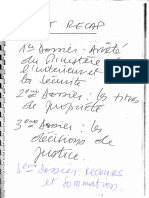 ET RECAP
1er Dossier : Arrêté
du Ministère de
l'intérieur et de
la sécurité
2eme Dossier : les titres
de propriété
3eme Dossier : les
décisions de
justice.
Dossier : Recours
et sommations.